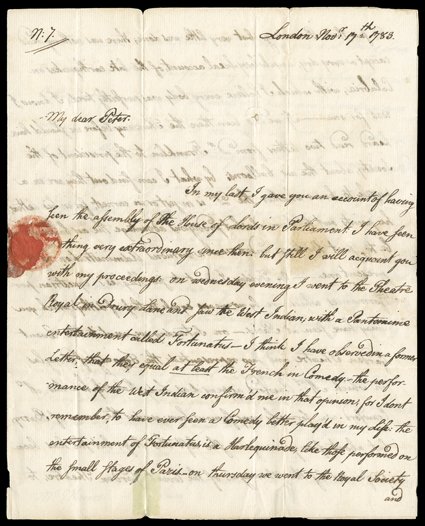 N: 7.
London Novr. 17th 1783.
My dear Peter.
In my last I gave you an account of having
seen the assembly of the House of lords in Parliament I have seen
nothing very extraordinary since then; but still I will acquaint you
with my proceedings. on wednesday evening I went to the Theatre
Royal in Drury Lane and saw the West Indian, with a Pantomime
entertainment called Fortunatus — I think I have observed in a former
Letter, that they equal at least the French in Comedy — the perfor-
mance of the West Indian confirm'd me in that opinion; for I dont
remember, to have ever seen a Comedy better play'd in my life. the
entertainment of Fortunatus, is a Harlequinade, like those performed on
the Small Stages of Paris — on thursday we went to the Royal Society
and